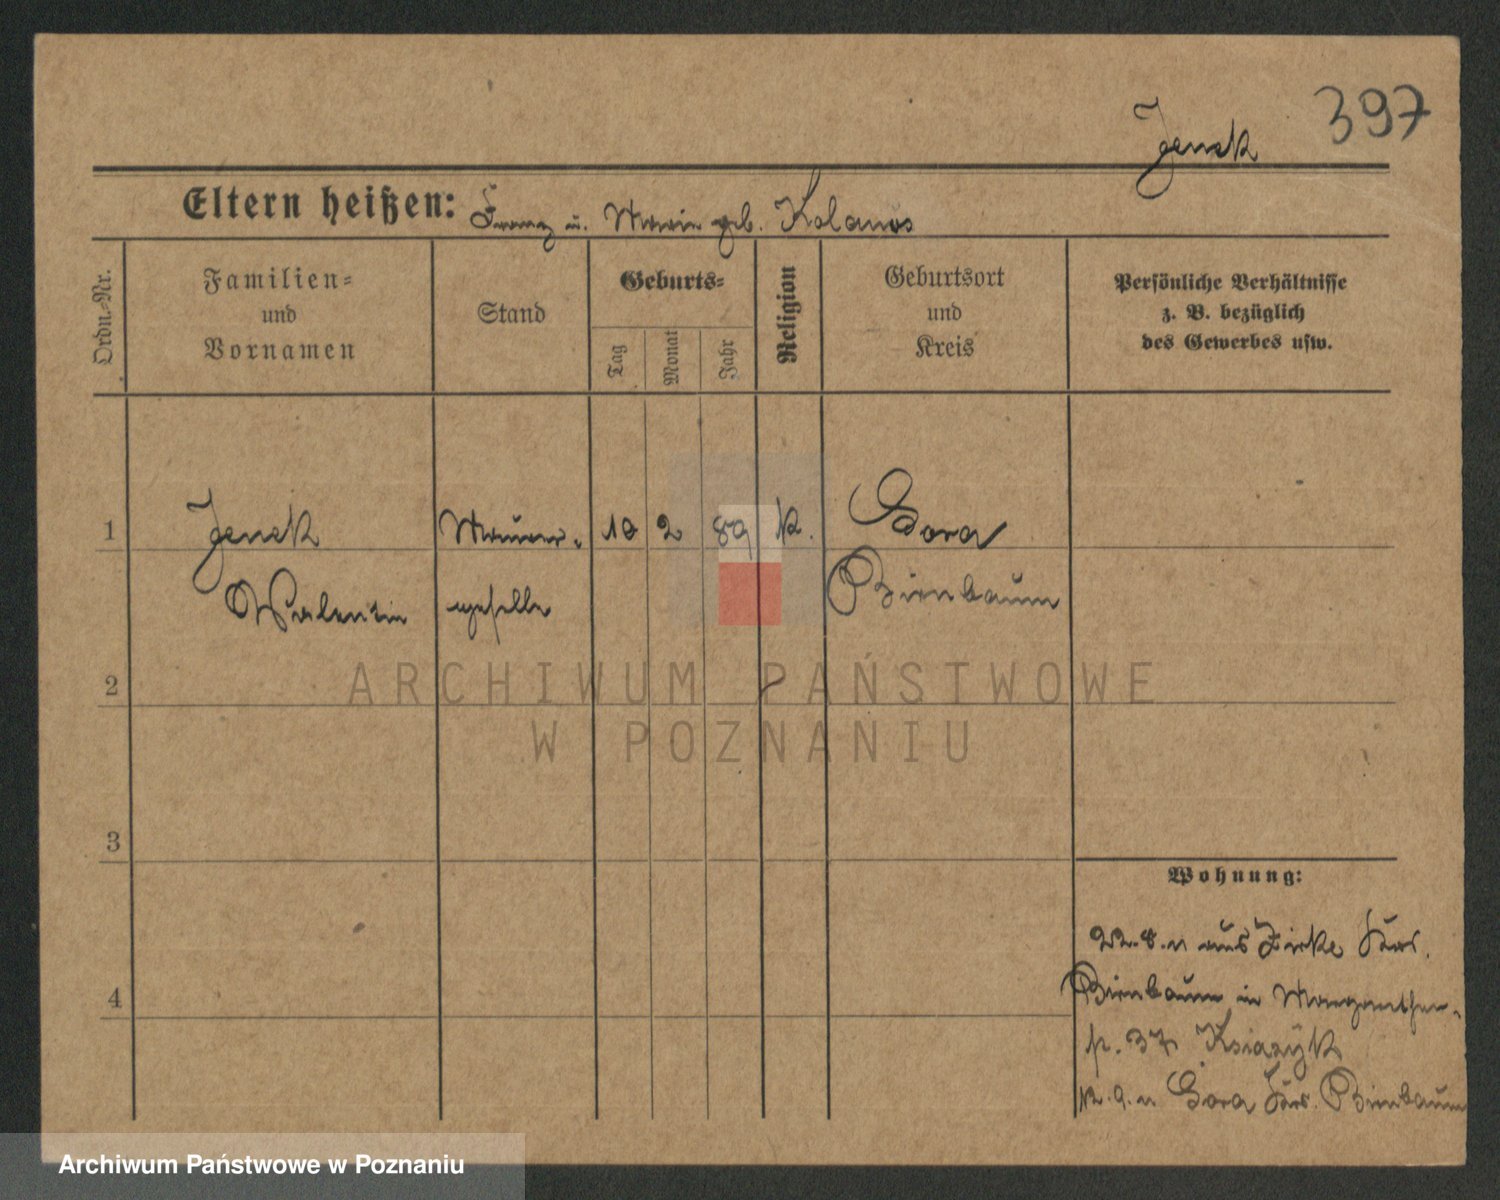 397
Jenek
Eltern heißen: Franz u. Marie geb. Kolanos
Ordn.-Nr.
Familien-
und
Vornamen
Stand
Geburts-
Tag
Monat
Jahr
Religion
Geburtsort
und
Kreis
Persönliche Verhältnisse
z. B. bezüglich
des Gewerbes usw.
1 Jenek Maurer- 2 89 k. Gora
Walentin geselle Birnbaum
2
3
4
Wohnung:
aus Zirke Krs.
Birnbaum in
p. 37 Ksiazyk
Gora Krs. Birnbaum
ARCHIWUM PAŃSTWOWE
W POZNANIU
Archiwum Państwowe w Poznaniu